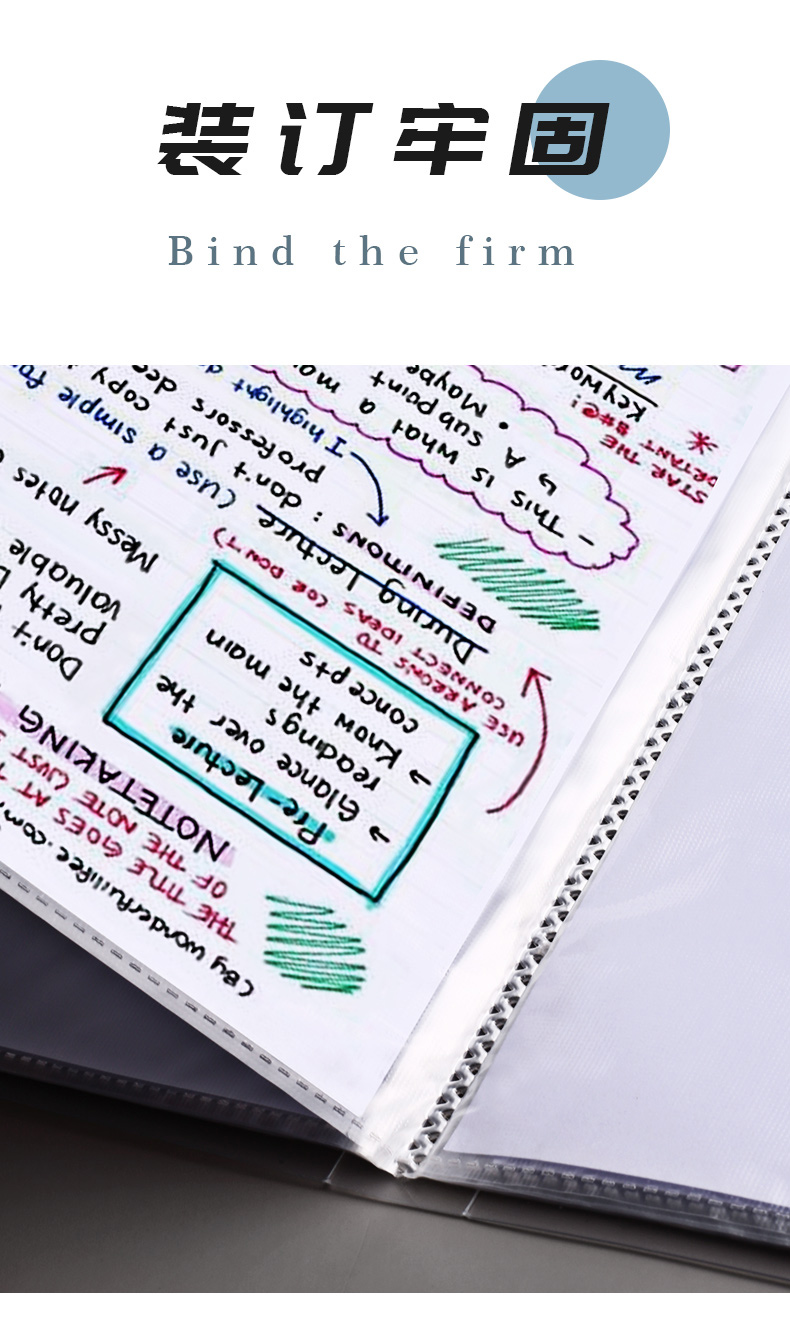 装订牢固
Bind the firm
(By wonderfullifee.com
THE TITLE GOES AT
OF THE NOTE (JUST
NOTETAKING
Pre-Lecture
→ Glance over the
readings
→ Know the main
concepts
USE ARROWS TO
CONNECT IDEAS (OR DON'T)
Don't
pretty
valuable
Messy notes
During lecture (use a simple
DEFINITIONS: don't just copy
professors
I highlight
- This is what a
↳ A sub point
• Maybe
STAR THE
Keyword